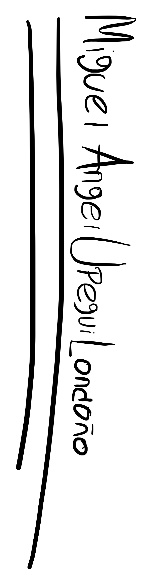 Miguel Angel Upegui Londoño